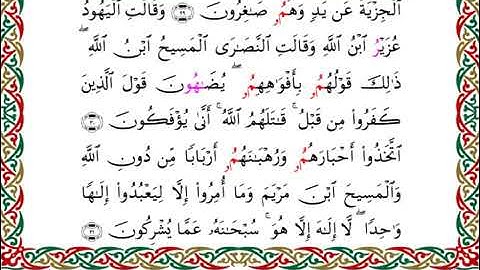 ٱلۡجِزۡيَةَ عَن يَدٖ وَهُمُۥ صَٰغِرُونَ ٢٩ وَقَالَتِ ٱلۡيَهُودُ
عُزَيۡرُ ٱبۡنُ ٱللَّهِ وَقَالَتِ ٱلنَّصَٰرَى ٱلۡمَسِيحُ ٱبۡنُ ٱللَّهِۖ
ذَٰلِكَ قَوۡلُهُمُۥ بِأَفۡوَٰهِهِمُۥۖ يُضَٰهُونَ قَوۡلَ ٱلَّذِينَ
كَفَرُواْ مِن قَبۡلُۚ قَٰتَلَهُمُ ٱللَّهُۚ أَنَّىٰ يُؤۡفَكُونَ ٣٠
ٱتَّخَذُوٓاْ أَحۡبَارَهُمُۥ وَرُهۡبَٰنَهُمُۥ أَرۡبَابٗا مِّن دُونِ ٱللَّهِ
وَٱلۡمَسِيحَ ٱبۡنَ مَرۡيَمَ وَمَآ أُمِرُوٓاْ إِلَّا لِيَعۡبُدُوٓاْ إِلَٰهٗا
وَٰحِدٗاۖ لَّآ إِلَٰهَ إِلَّا هُوَۚ سُبۡحَٰنَهُۥ عَمَّا يُشۡرِكُونَ ٣١